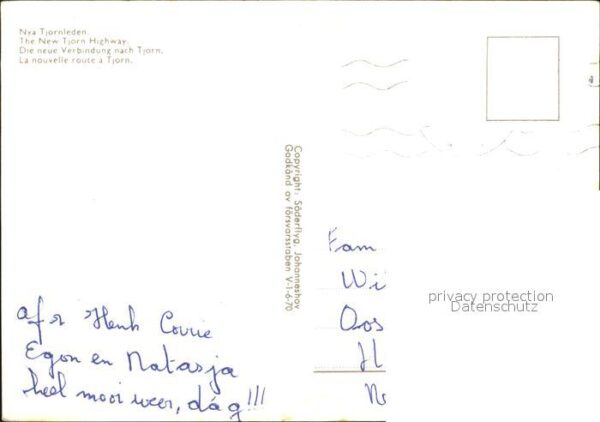 Nya Tjörnleden.
The New Tjörn Highway.
Die neue Verbindung nach Tjörn.
La nouvelle route à Tjörn.
Copyright: Söderflyg, Johanneshov
Godkänd av försvarsstaben V-1-6-70
Fam
Wi
Oos
H
privacy protection
Datenschutz
Henk Corrie
Egon en Natasja
heel mooi weer, dág!!!